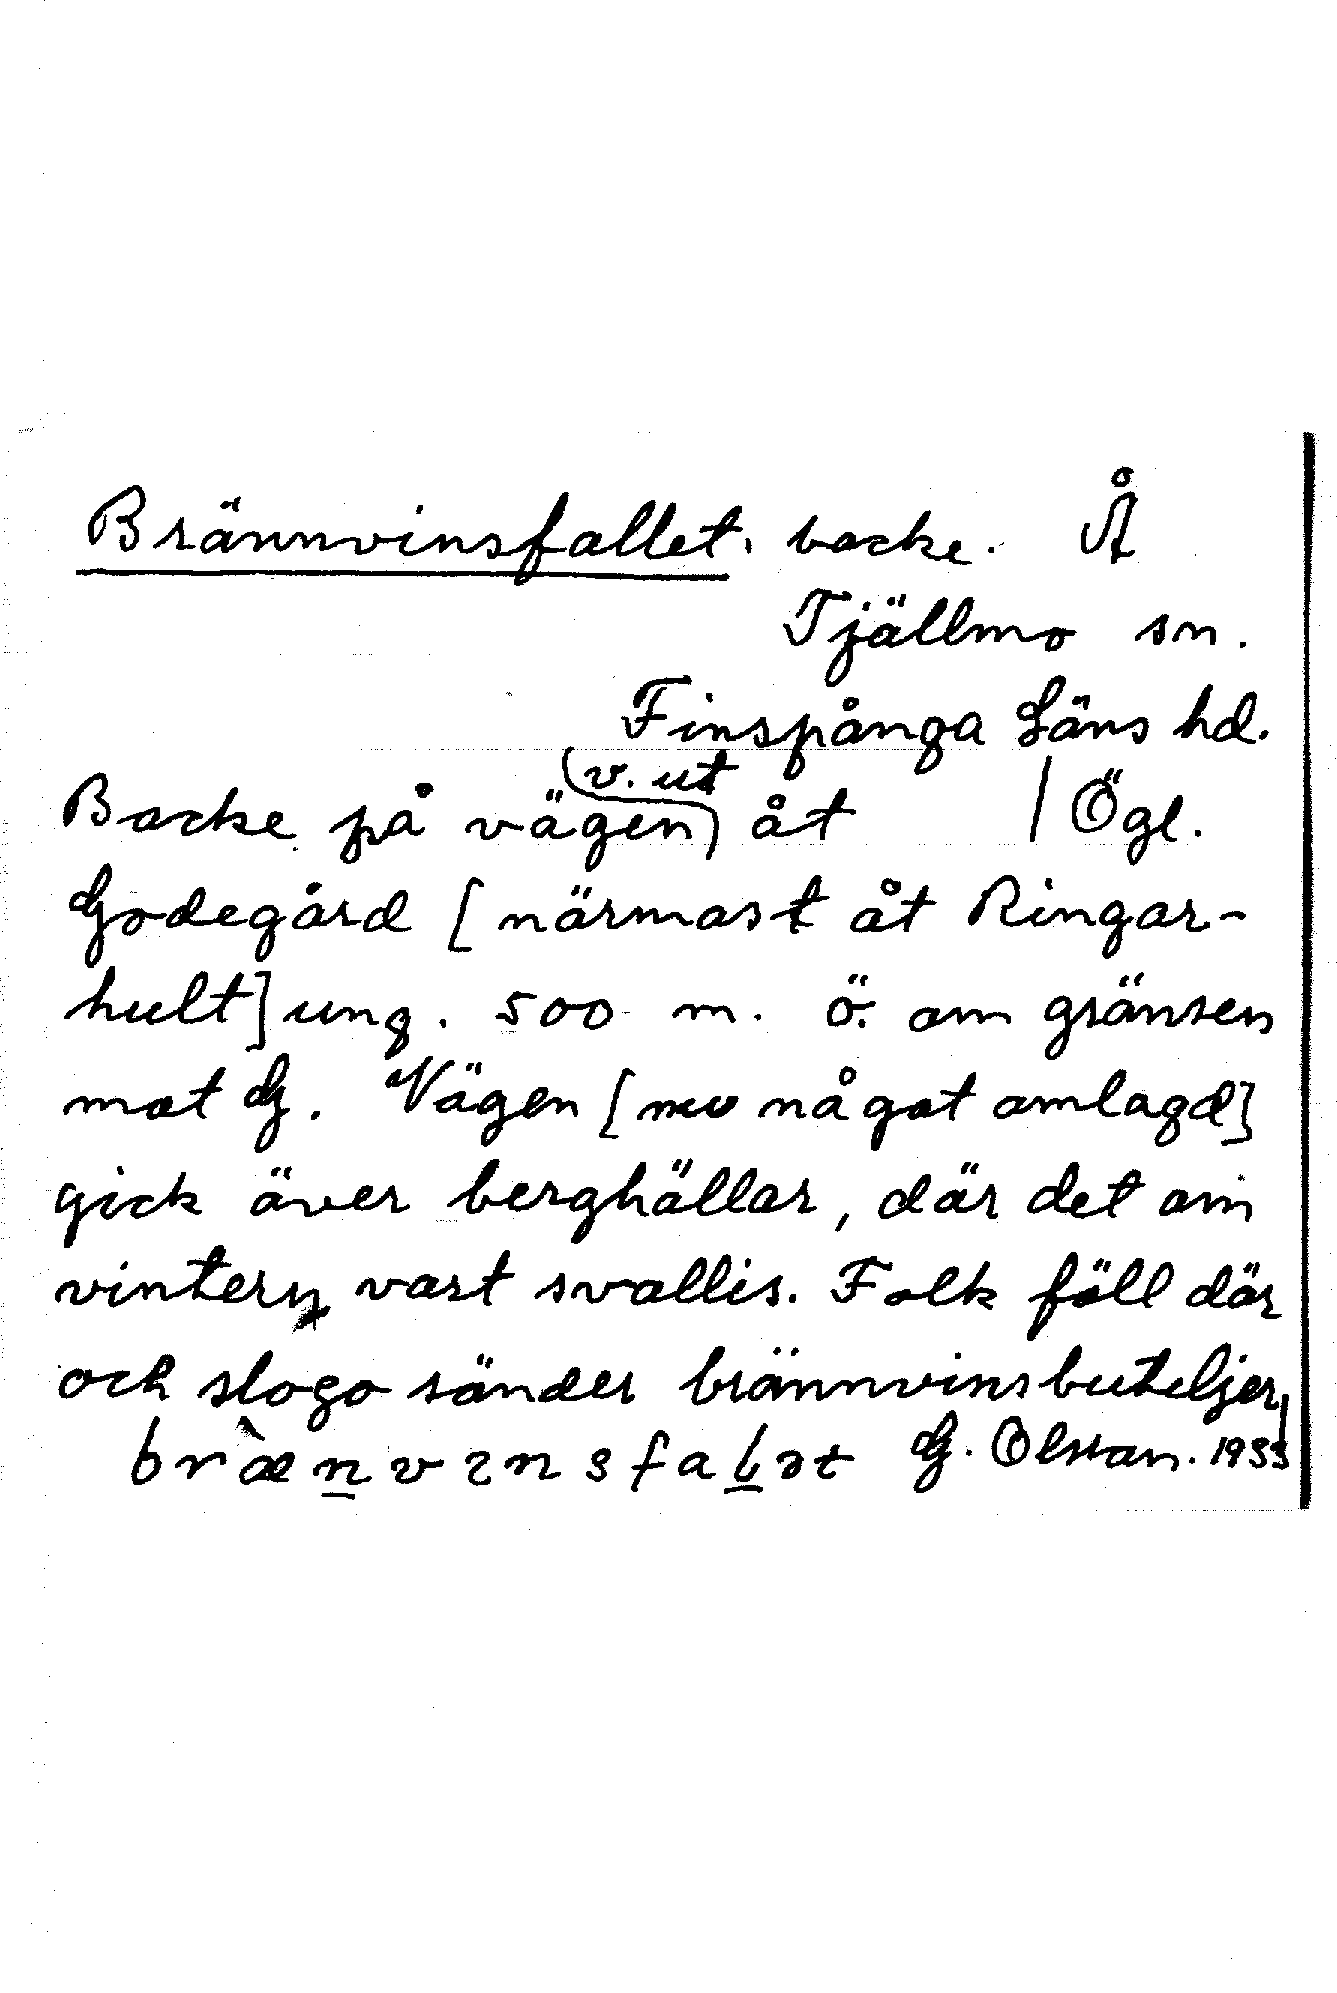 Brännvinsfallet, backe. Å
Tjällmo sn.
Finspånga Läns hd.
Backe på vägen v. ut åt | Ögl.
Godegård [närmast åt Ringar-
hult] ung. 500 m. ö. om gränsen
mot G. Vägen [nu något omlagd]
gick över berghällar, där det om
vintern vart svallis. Folk föll där
och slogo sönder brännvinsbuteljer
brænvinsfalət G. Olsson. 1933